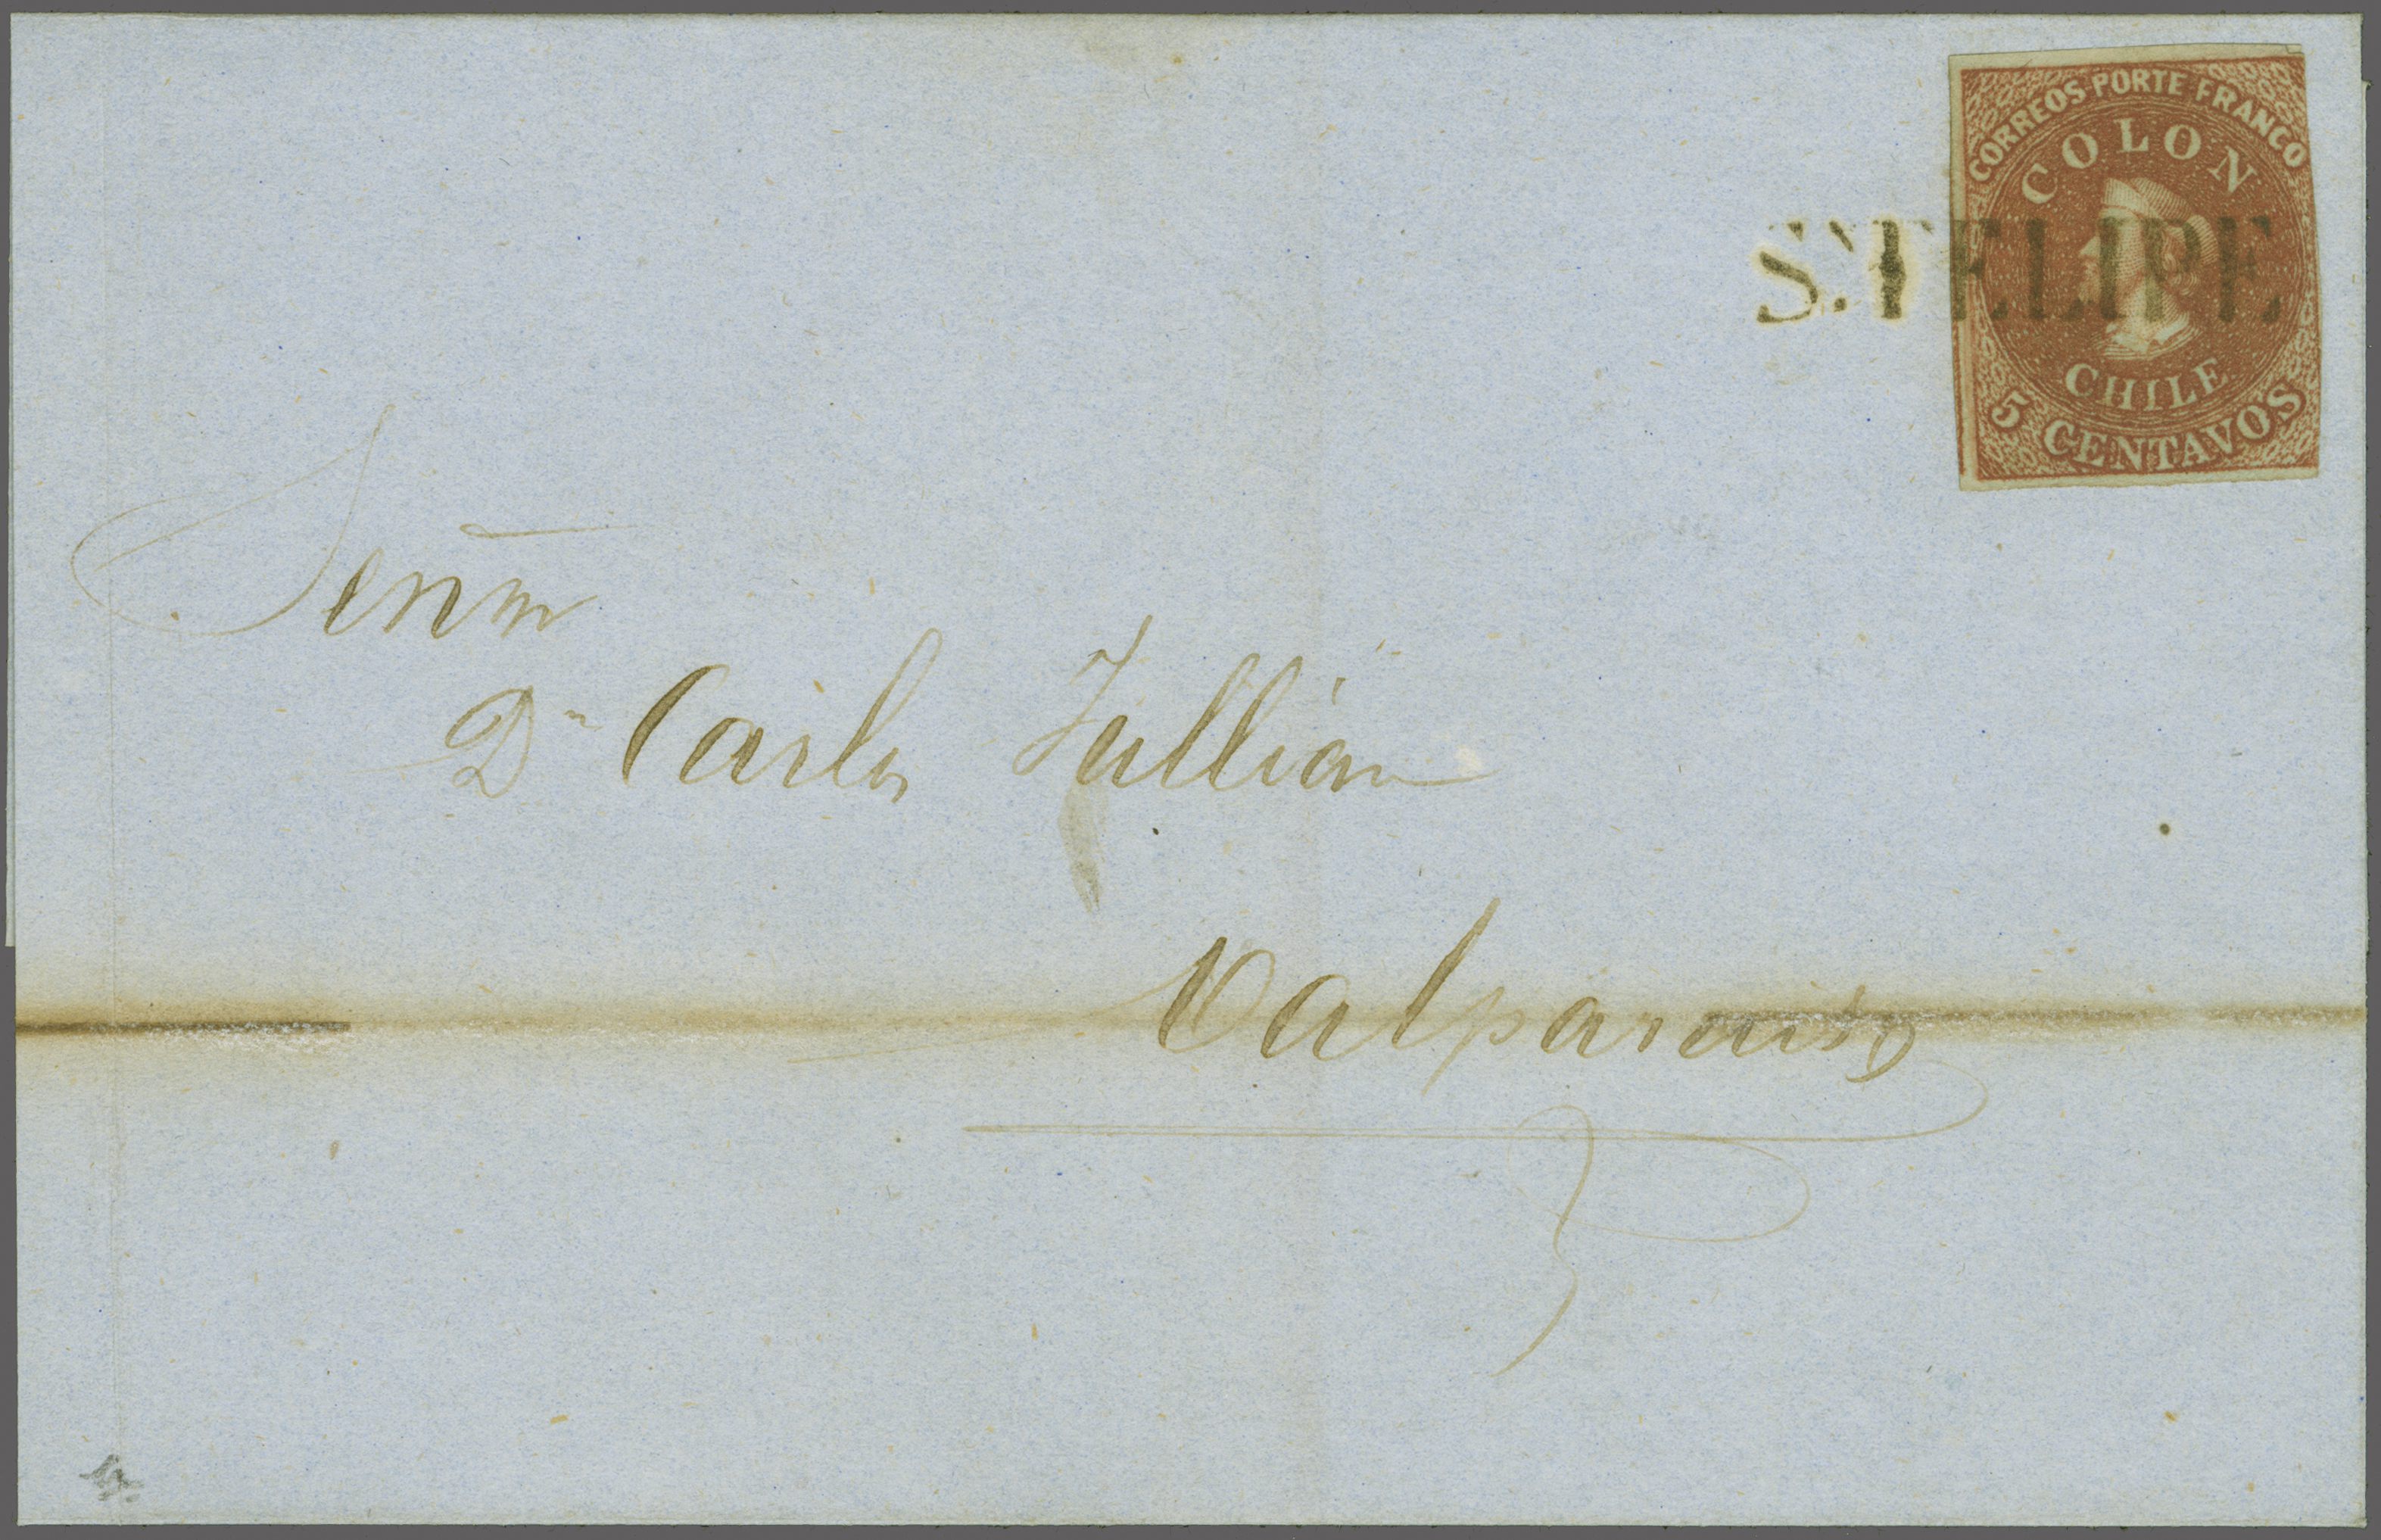 CORREOS PORTE FRANCO
COLON
S. FELIPE
CHILE
5 CENTAVOS
Señor
Dn Carlos Jullian
Valparaiso